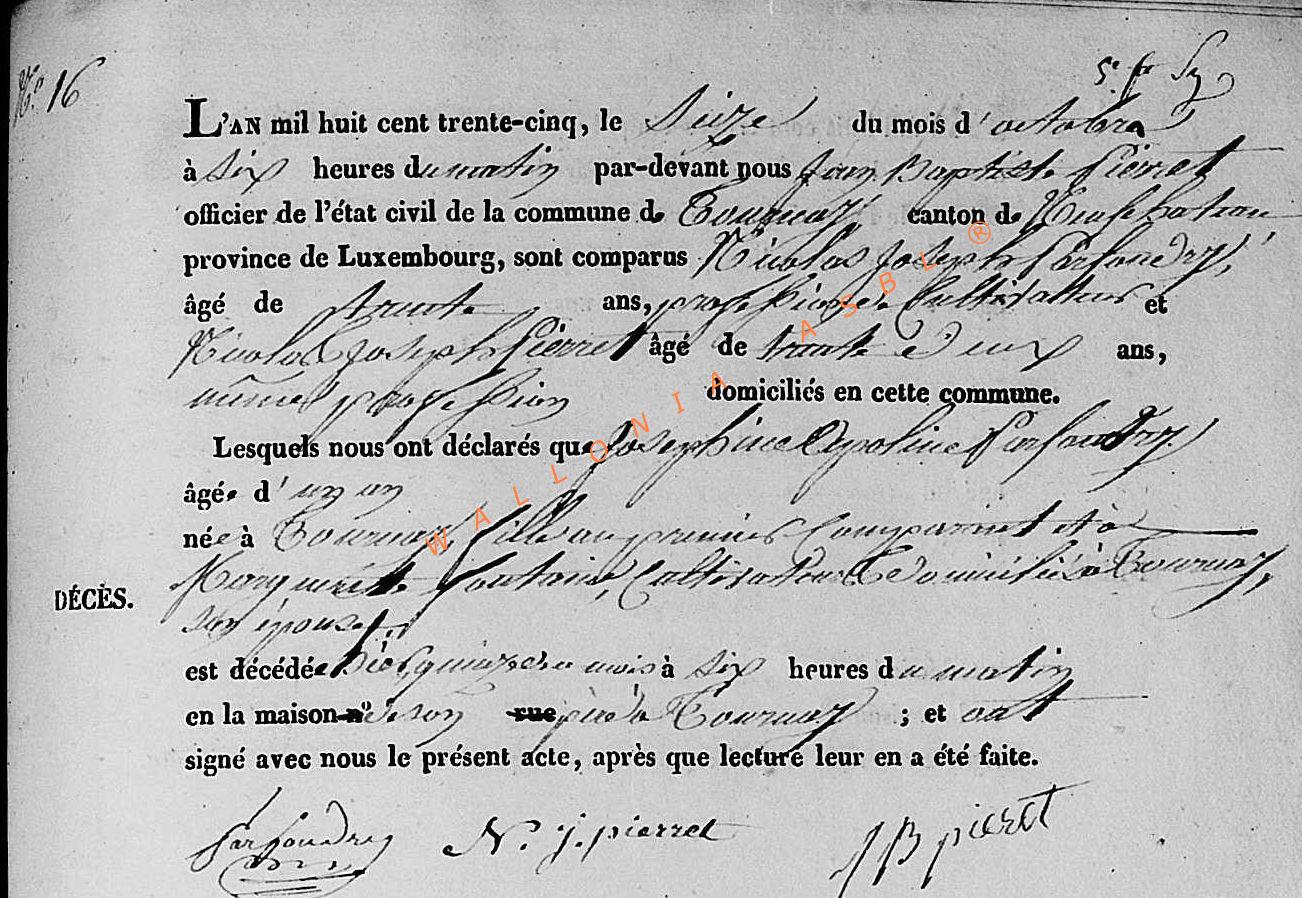 N.° 16
L'AN mil huit cent trente-cinq, le Seize du mois d'octobre
à six heures du matin par-devant nous Jean Baptiste Pierret
officier de l'état civil de la commune de Tournay, canton de Neufchateau
province de Luxembourg, sont comparus Nicolas Joseph Parfondry,
âgé de trente ans, profession de Cultivateur et
Nicolas Joseph Pierret âgé de trente deux ans,
même profession domiciliés en cette commune.
Lesquels nous ont déclarés que Josephine Apoline Parfondry
âgée d'un an
née à Tournay, fille au premier Comparant et à
Marguerite Fontaine, Cultivateurs domiciliés à Tournay,
son épouse,
est décédée hier quinze du mois à six heures du matin
en la maison n° de son rue père à Tournay ; et ont
signé avec nous le présent acte, après que lecture leur en a été faite.
DÉCÈS.
Parfondry N. j. pierret J B pieret
WALLONIA ASBL ®